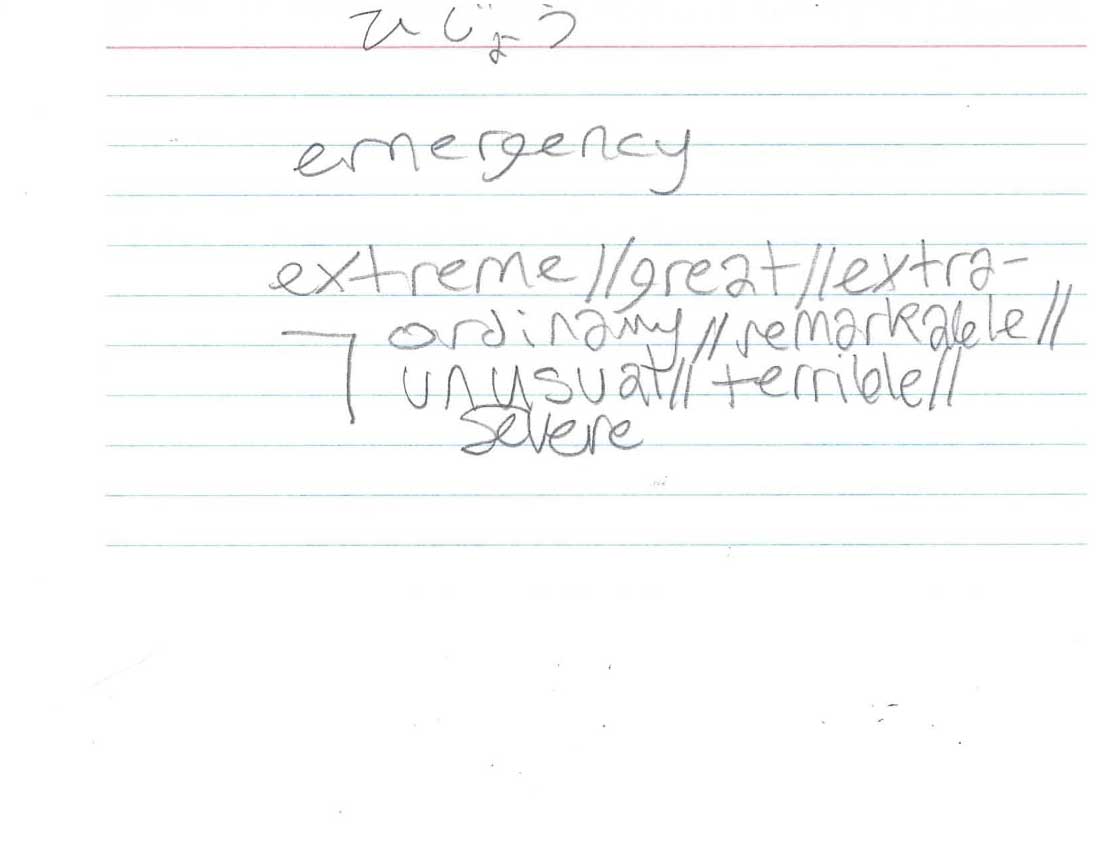 ひじょう
emergency
extreme//great//extra-
ordinary//remarkable//
unusual//terrible//
severe